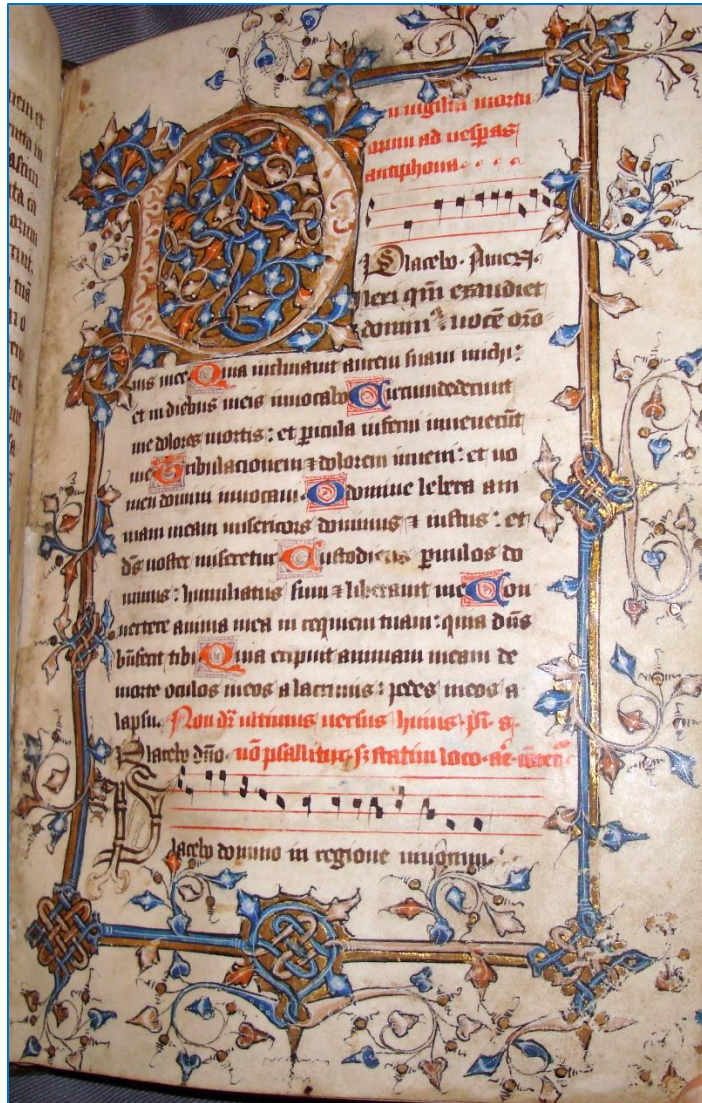 In vigilia mortu
orum ad vesp̄as
antiphona
Placebo. Amen.
Dilexi qm̄ exaudiet
dominꝰ vocē oro
nis mee Quia inclinavit aurem suam michi:
et in diebus meis invocabo Circumdederunt
me dolores mortis: et picula inferni invenerūt
me Tribulacionem ⁊ dolorem inveni: et no
men domini invocavi. O domine libera am
mam meam misericors dominus ⁊ iustus: et
ds̄ noster miseretur Custodiens pvulos do
minus: humiliatus sum ⁊ liberavit me Con
vertere anima mea in requiem tuam: quia dūs
bn̄fecit tibi Quia eripuit animam meam de
morte oculos meos a lacrimis: pedes meos a
lapsu. Non dr̄ ultimus versus huius ps̄.
Placebo dn̄o. nō psallitur. s̄ statim loco
Placebo domino in regione vivorum.